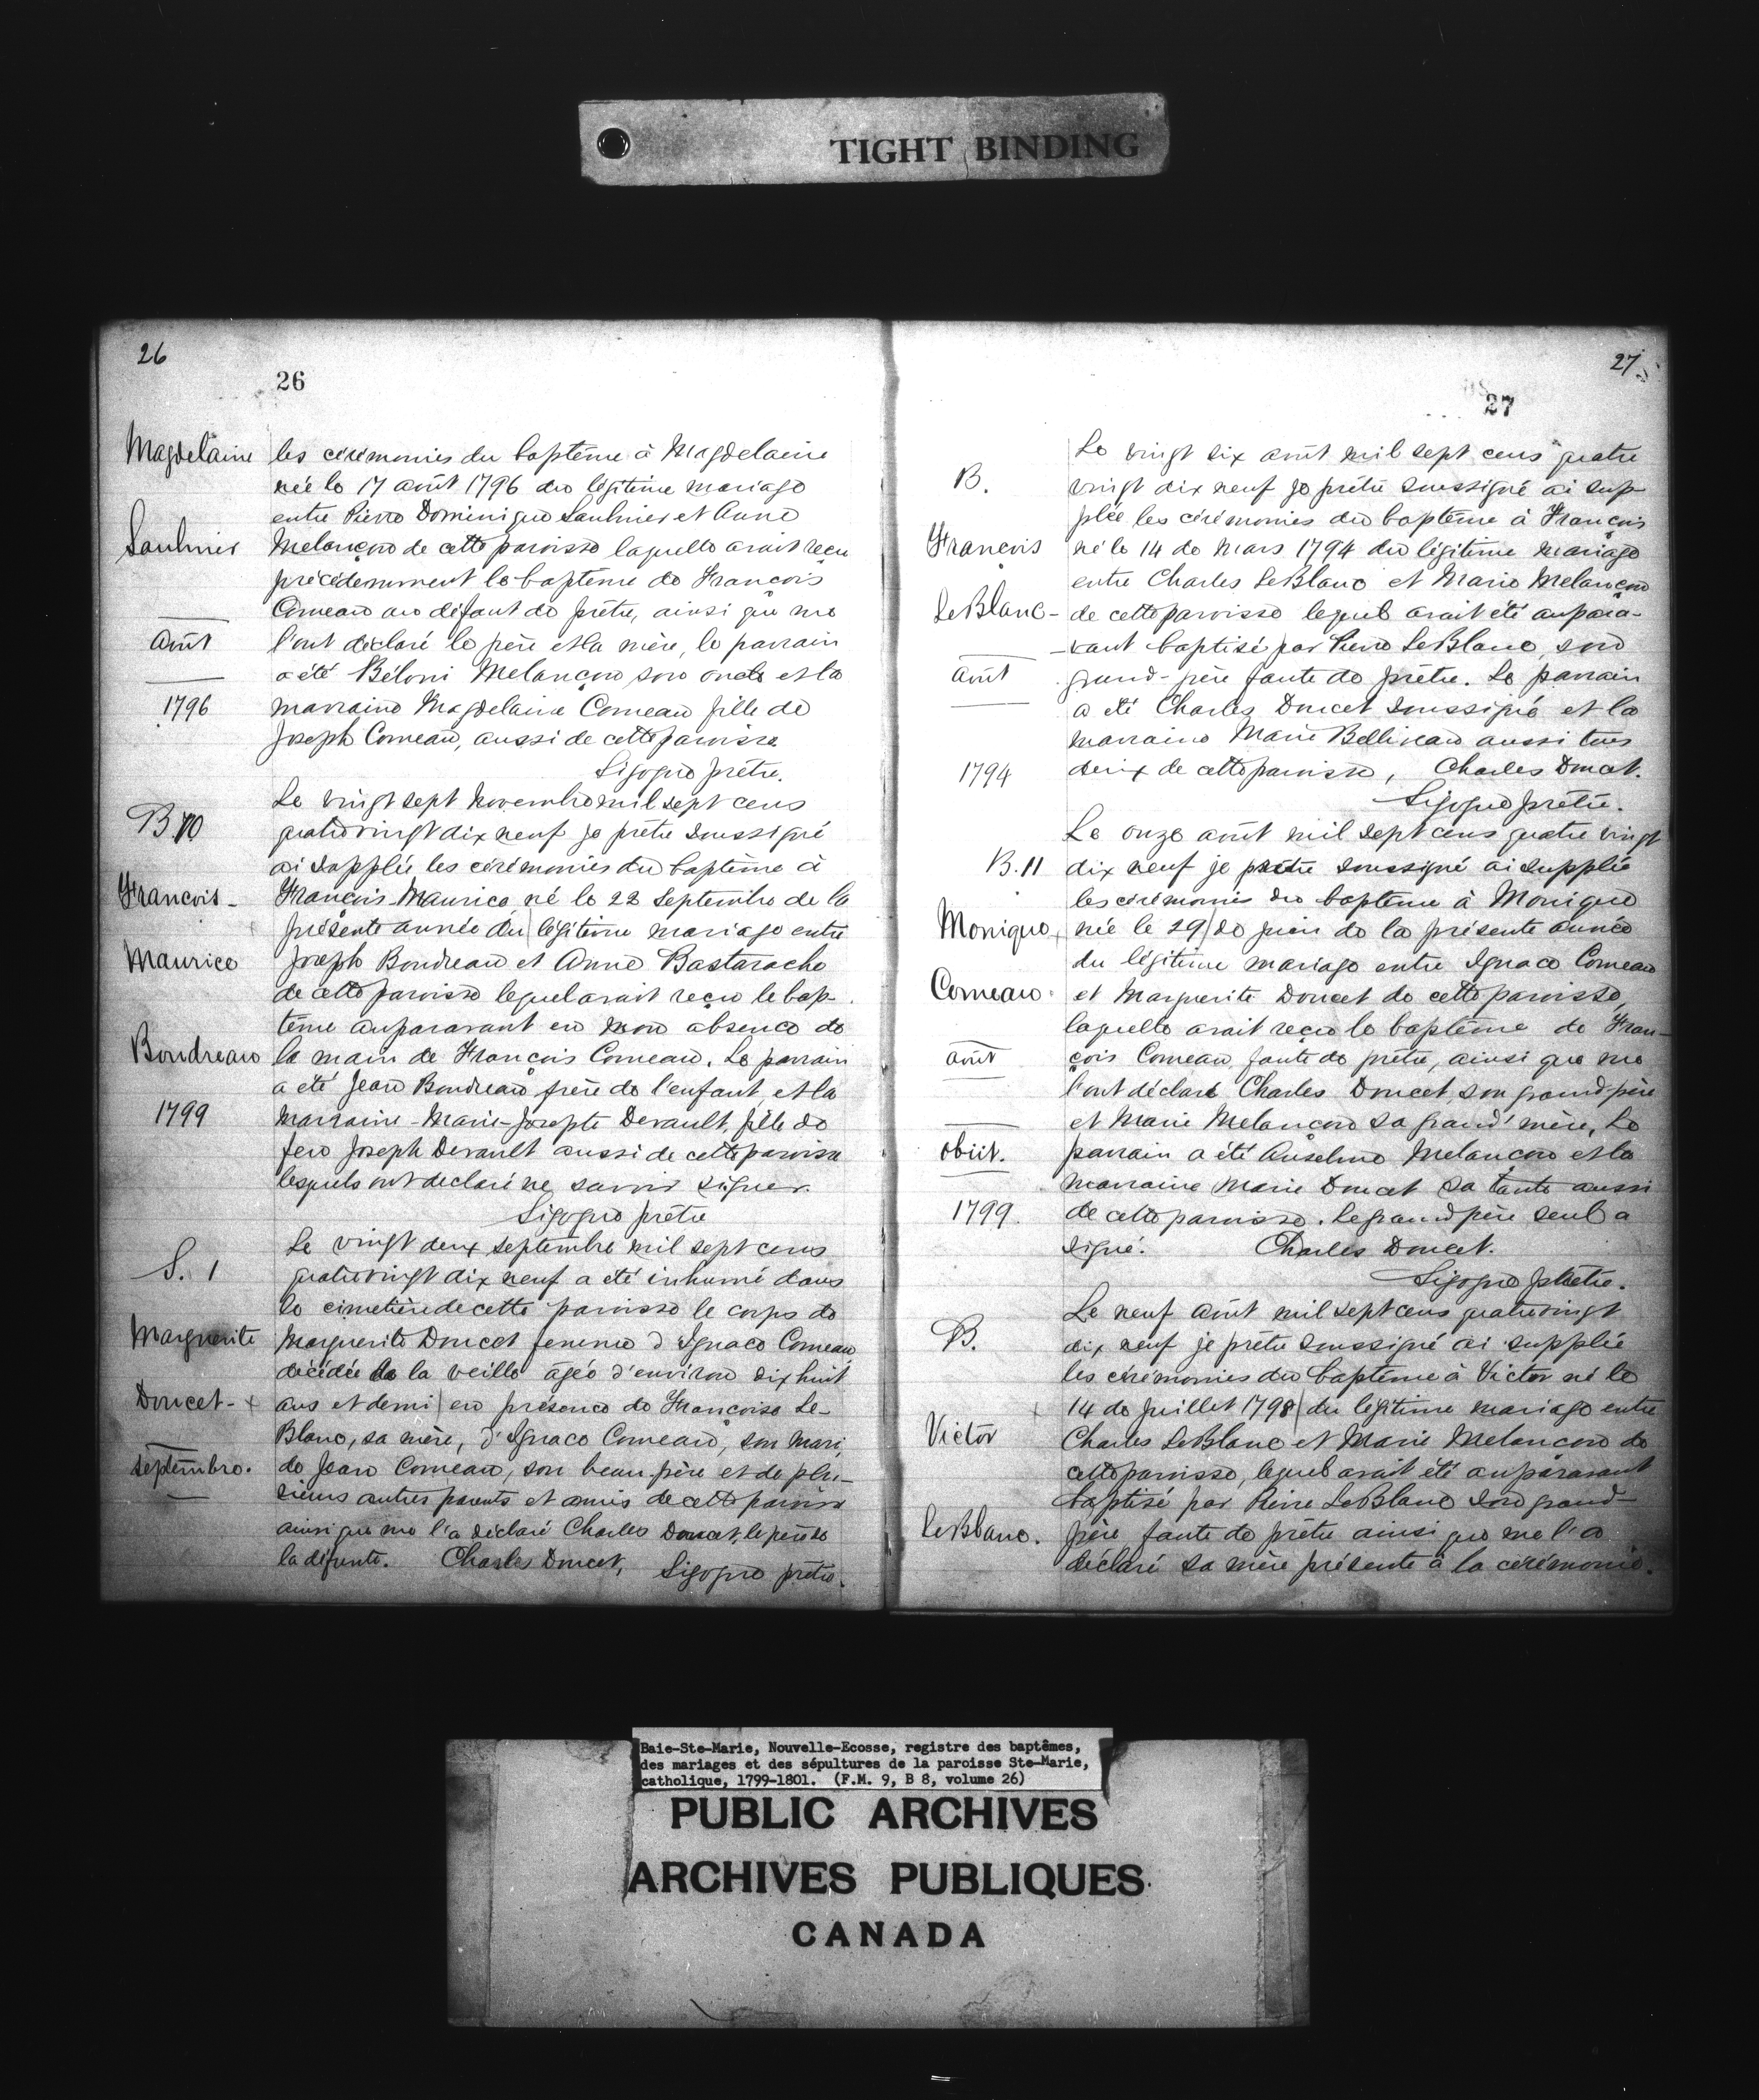 TIGHT BINDING
26
26
Magdelaine
Saulnier
Août
1796
les cérémonies du baptême à Magdelaine
née le 17 août 1796 du légitime mariage
entre Pierre Dominique Saulnier et Anne
Melançon de cette paroisse laquelle avait reçu
précédemment le baptême de François
Comeau au défaut de prêtre, ainsi que me
l'ont déclaré le père et la mère, le parrain
a été Béloni Melançon son oncle et la
marraine Magdelaine Comeau fille de
Joseph Comeau, aussi de cette paroisse
Sigogne prêtre.
B 10
François-
Maurice
Boudreau
1799
Le vingt sept Novembre mil sept cens
quatre vingt dix neuf je prêtre soussigné
ai supplée les cérémonies du baptême à
François-Maurice né le 22 Septembre de la
présente année du légitime mariage entre
Joseph Boudreau et Anne Bastarache
de cette paroisse lequel avait reçu le bap-
tême auparavant en mon absence de
la main de François Comeau. Le parrain
a été Jean Boudreau frère de l'enfant, et la
marraine-Marie-Josepte Devault, fille de
feu Joseph Devault aussi de cette paroisse
lesquels ont declaré ne savoir signer.
Sigogne prêtre
S. 1
Marguerite
Doucet-
Septembre.
Le vingt deux septembre mil sept cens
quatre vingt dix neuf a été inhumé dans
le cimetière de cette paroisse le corps de
Marguerite Doucet femme d'Ignace Comeau
décédée la veille âgée d'environ dix huit
ans et demi en présence de Françoise Le-
Blanc, sa mère, d'Ignace Comeau, son mari,
de Jean Comeau, son beau-père et de plu-
sieurs autres parents et amis de cette paroisse
ainsi que me l'a déclaré Charles Doucet, le père de
la défunte. Charles Doucet, Sigogne prêtre.
27
27
B.
François
LeBlanc-
Août
1794
Le vingt six août mil sept cens quatre
vingt dix neuf je prêtre soussigné ai sup-
plée les cérémonies du baptême à François
né le 14 de Mars 1794 du légitime mariage
entre Charles LeBlanc et Marie Melançon
de cette paroisse lequel avait été aupara-
-vant baptisé par Pierre LeBlanc, son
grand-père faute de prêtre. Le parrain
a été Charles Doucet soussigné et la
marraine Marie Belliveau aussi tous
deux de cette paroisse, Charles Doucet.
Sigogne prêtre.
B. 11
Monique
Comeau
août
obiit.
1799.
Le onze août mil sept cens quatre vingt
dix neuf je prêtre soussigné ai supplée
les cérémonies du baptême à Monique
née le 29 de juin de la présente année
du légitime mariage entre Ignace Comeau
et Marguerite Doucet de cette paroisse,
laquelle avait reçu le baptême de Fran-
çois Comeau, faute de prêtre, ainsi que me
l'ont déclaré Charles Doucet, son grand père
et Marie Melançon sa grand' mère, Le
parrain a été Anselme Melançon et la
marraine Marie Doucet sa tante aussi
de cette paroisse. Le grand père seul a
signé. Charles Doucet.
Sigogne prêtre.
B.
Victor
LeBlanc.
Le neuf août mil sept cens quatre vingt
dix neuf je prêtre soussigné ai supplée
les cérémonies du baptême à Victor né le
14 de juillet 1798 du légitime mariage entre
Charles LeBlanc et Marie Melancon de
cette paroisse, lequel avait été auparavant
baptisé par Pierre LeBlanc son grand-
père faute de prêtre ainsi que me l'a
déclaré sa mère présente à la cérémonie.
Baie-Ste-Marie, Nouvelle-Ecosse, registre des baptêmes,
des mariages et des sépultures de la paroisse Ste-Marie,
catholique, 1799-1801. (F.M. 9, B 8, volume 26)
PUBLIC ARCHIVES
ARCHIVES PUBLIQUES
CANADA